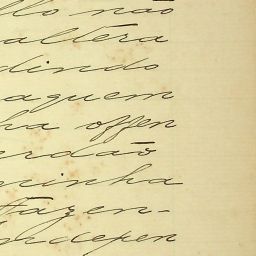 llo não
altera
dindo
aquem
ha offen
rdão
minha
Fazen-
Indepen